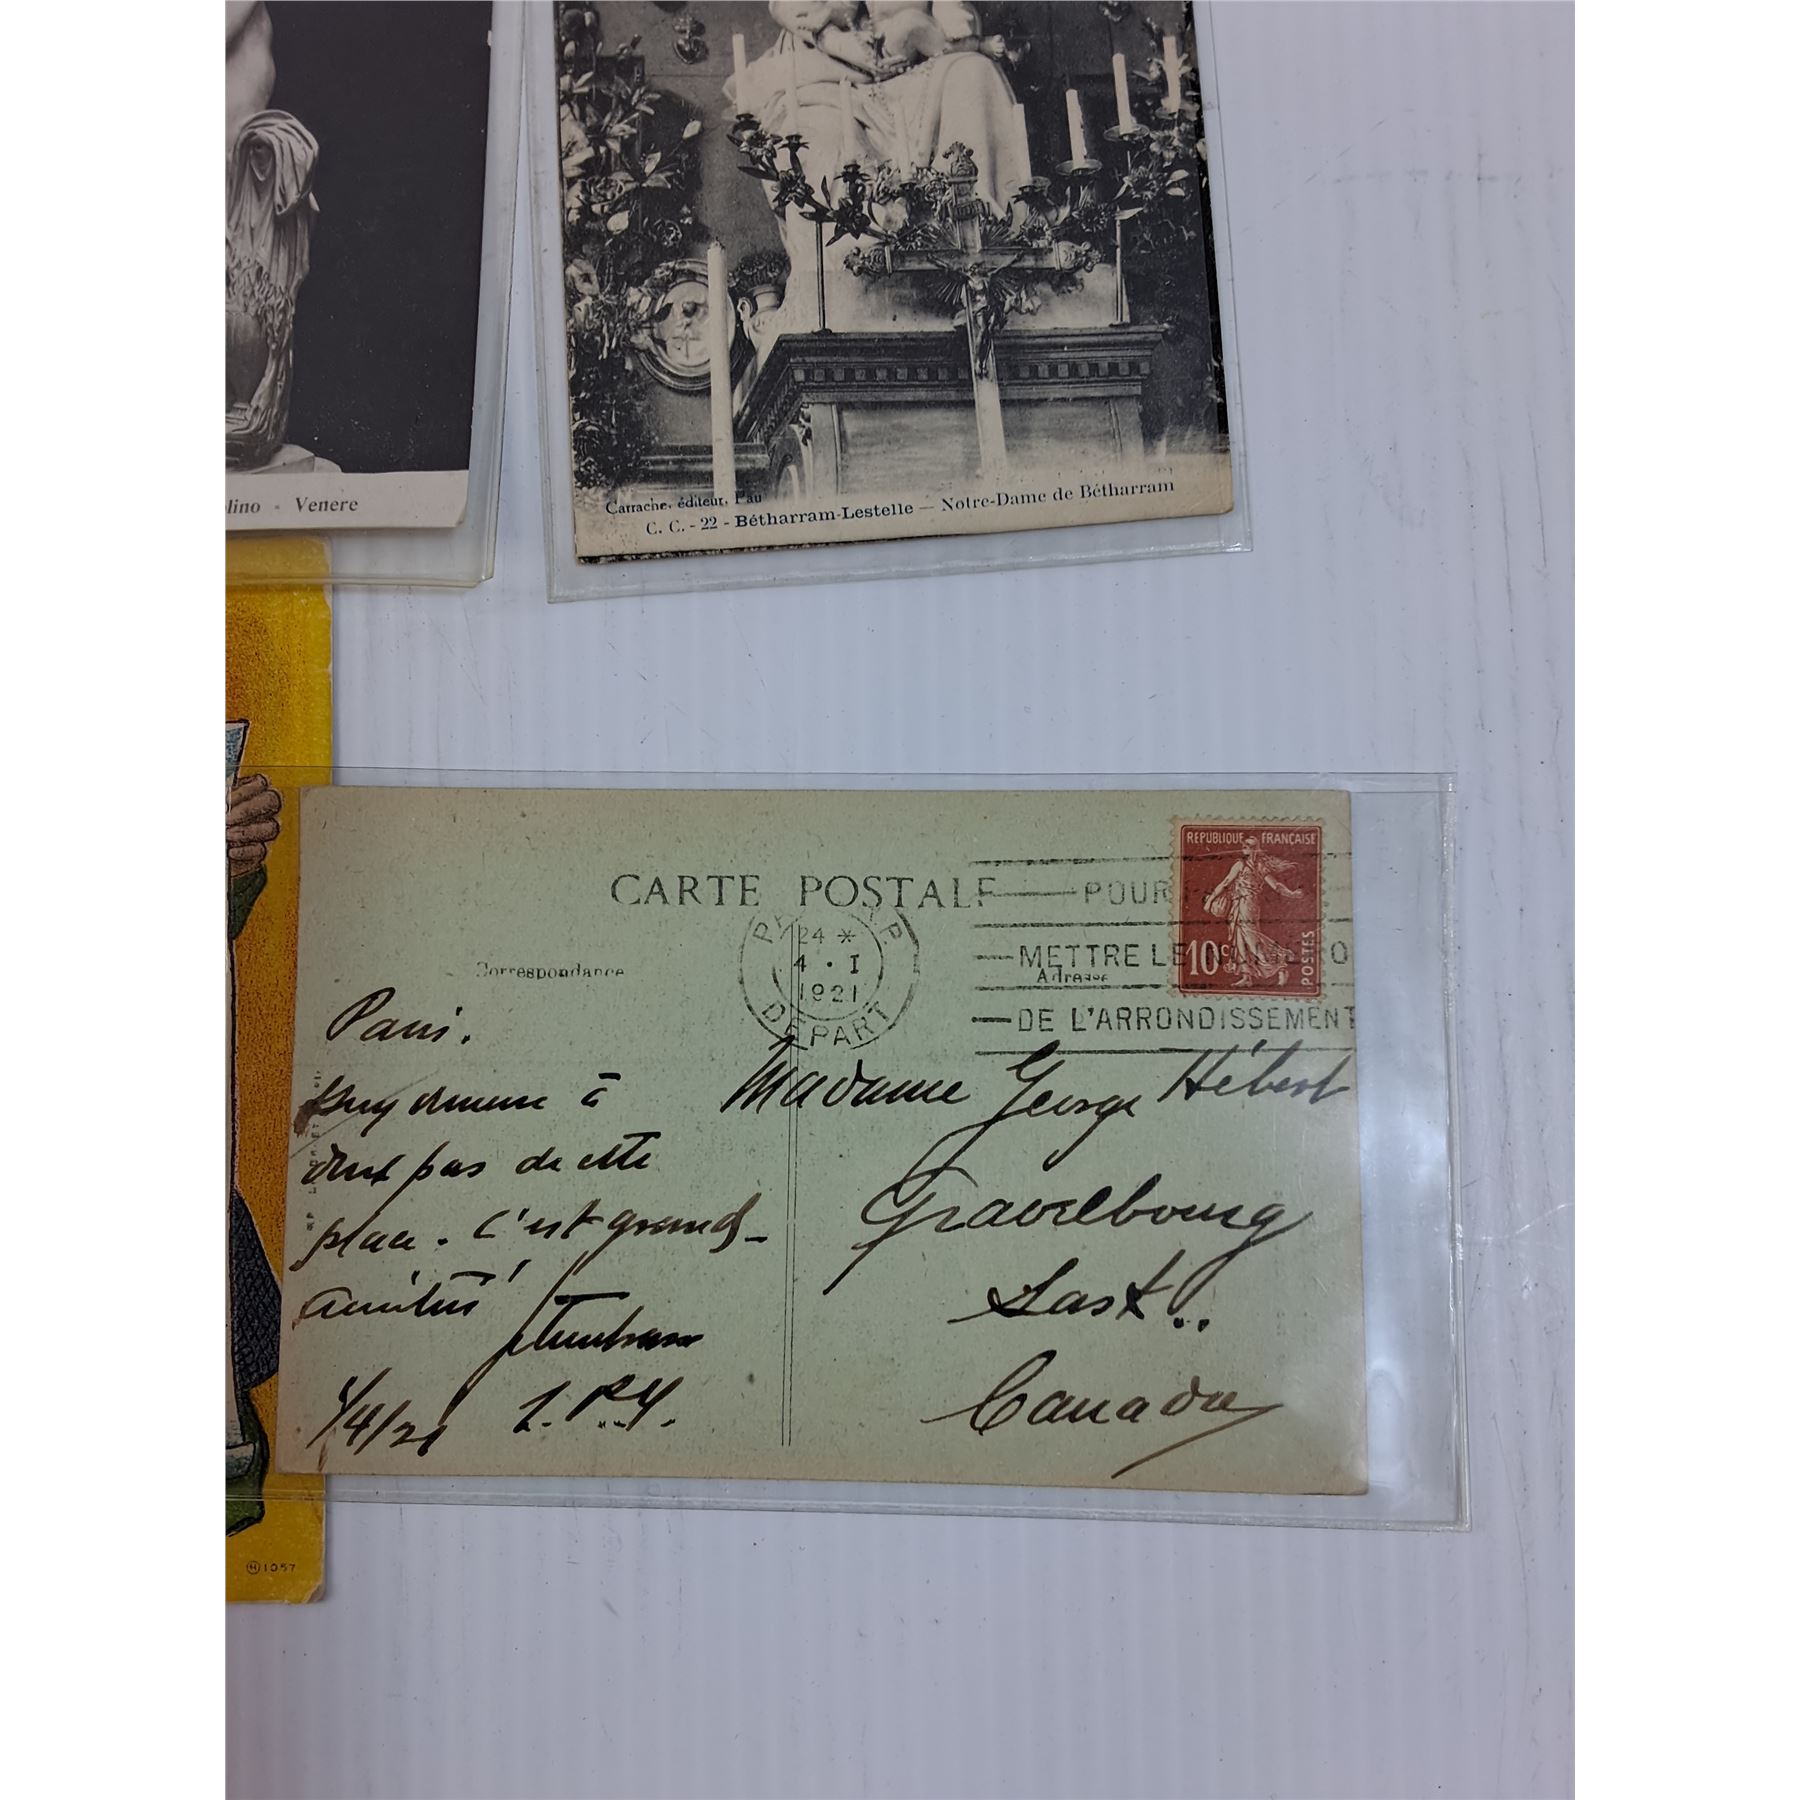 lino - Venere
Carrache, éditeur, Pau
C. C. - 22 - Bétharram-Lestelle — Notre-Dame de Bétharram
CARTE POSTALE
REPUBLIQUE FRANÇAISE
10c
POSTES
24 *
4 · I
1921
DEPART
POUR
METTRE LE NUMERO
DE L'ARRONDISSEMENT
Correspondance
Adresse
Paris.
à
pas de cette
place. C'est grand_
Amitiés
1/4/21
Madame George Hébert
Gravelbourg
Sask..
Canada
1057